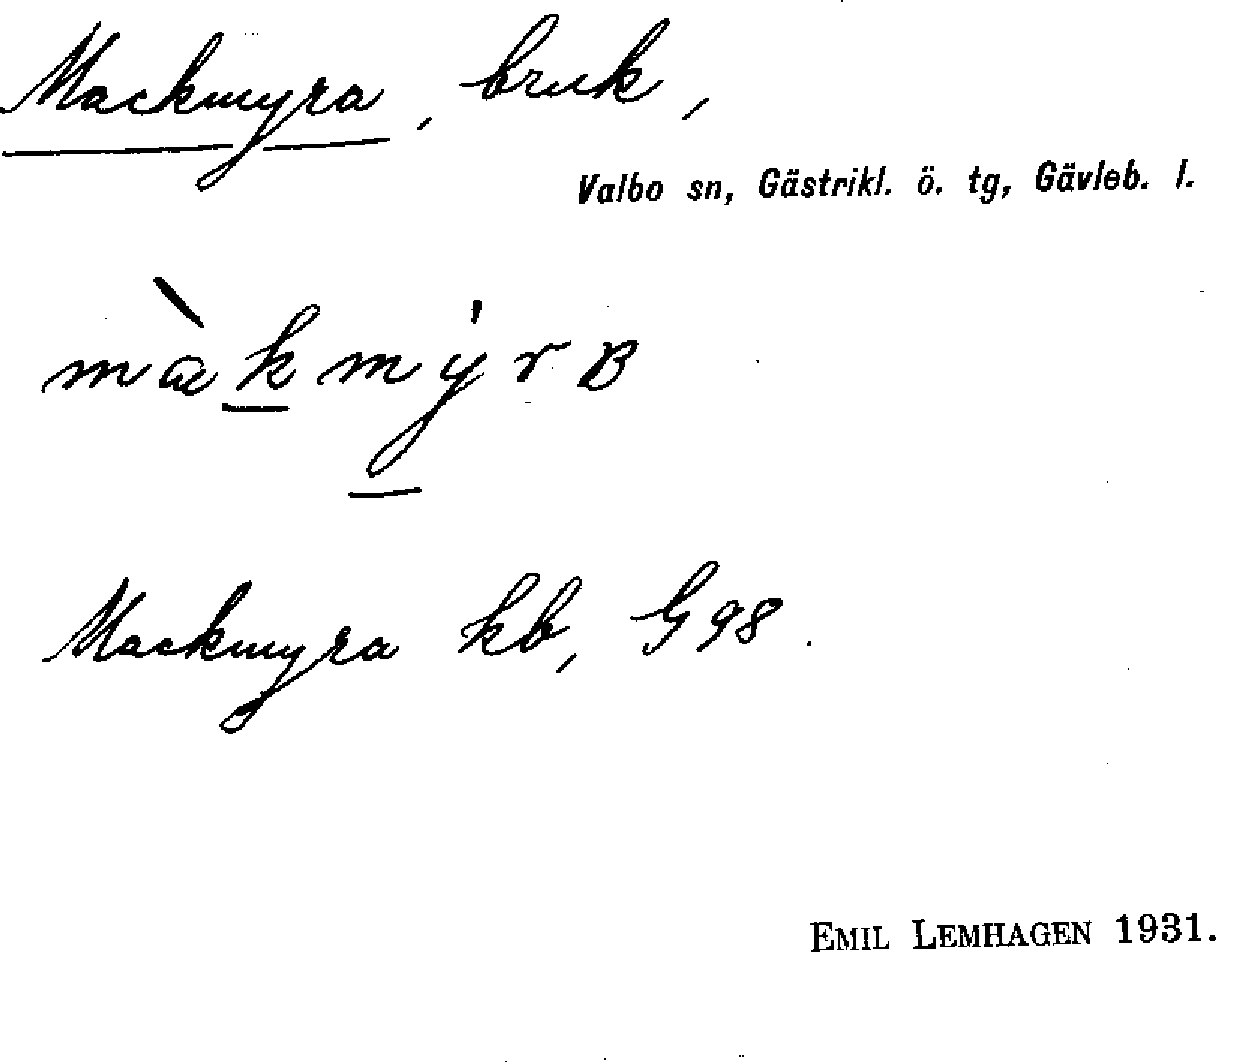 Mackmyra, bruk,
Valbo sn, Gästrikl. ö. tg, Gävleb. l.
màkmýrʙ
Mackmyra kb, G 98.
EMIL LEMHAGEN 1931.